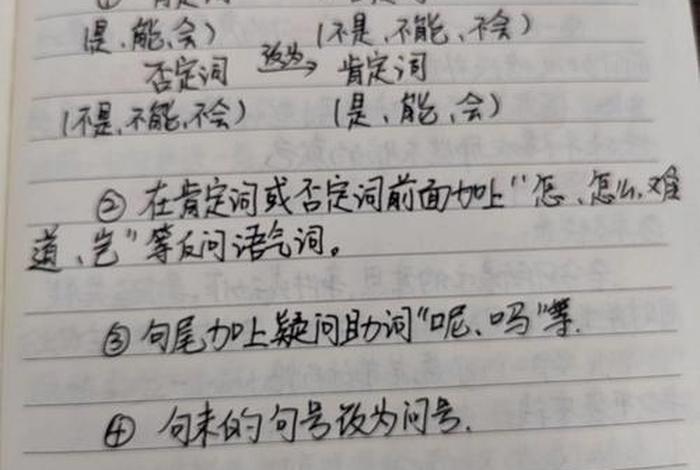 (是、能、会) (不是、不能、不会)
否定词 改为→ 肯定词
(不是、不能、不会) (是、能、会)
② 在肯定词或否定词前面加上"怎、怎么、难
道、岂"等反问语气词。
③ 句尾加上疑问助词"呢、吗"等.
④ 句末的句号改为问号.